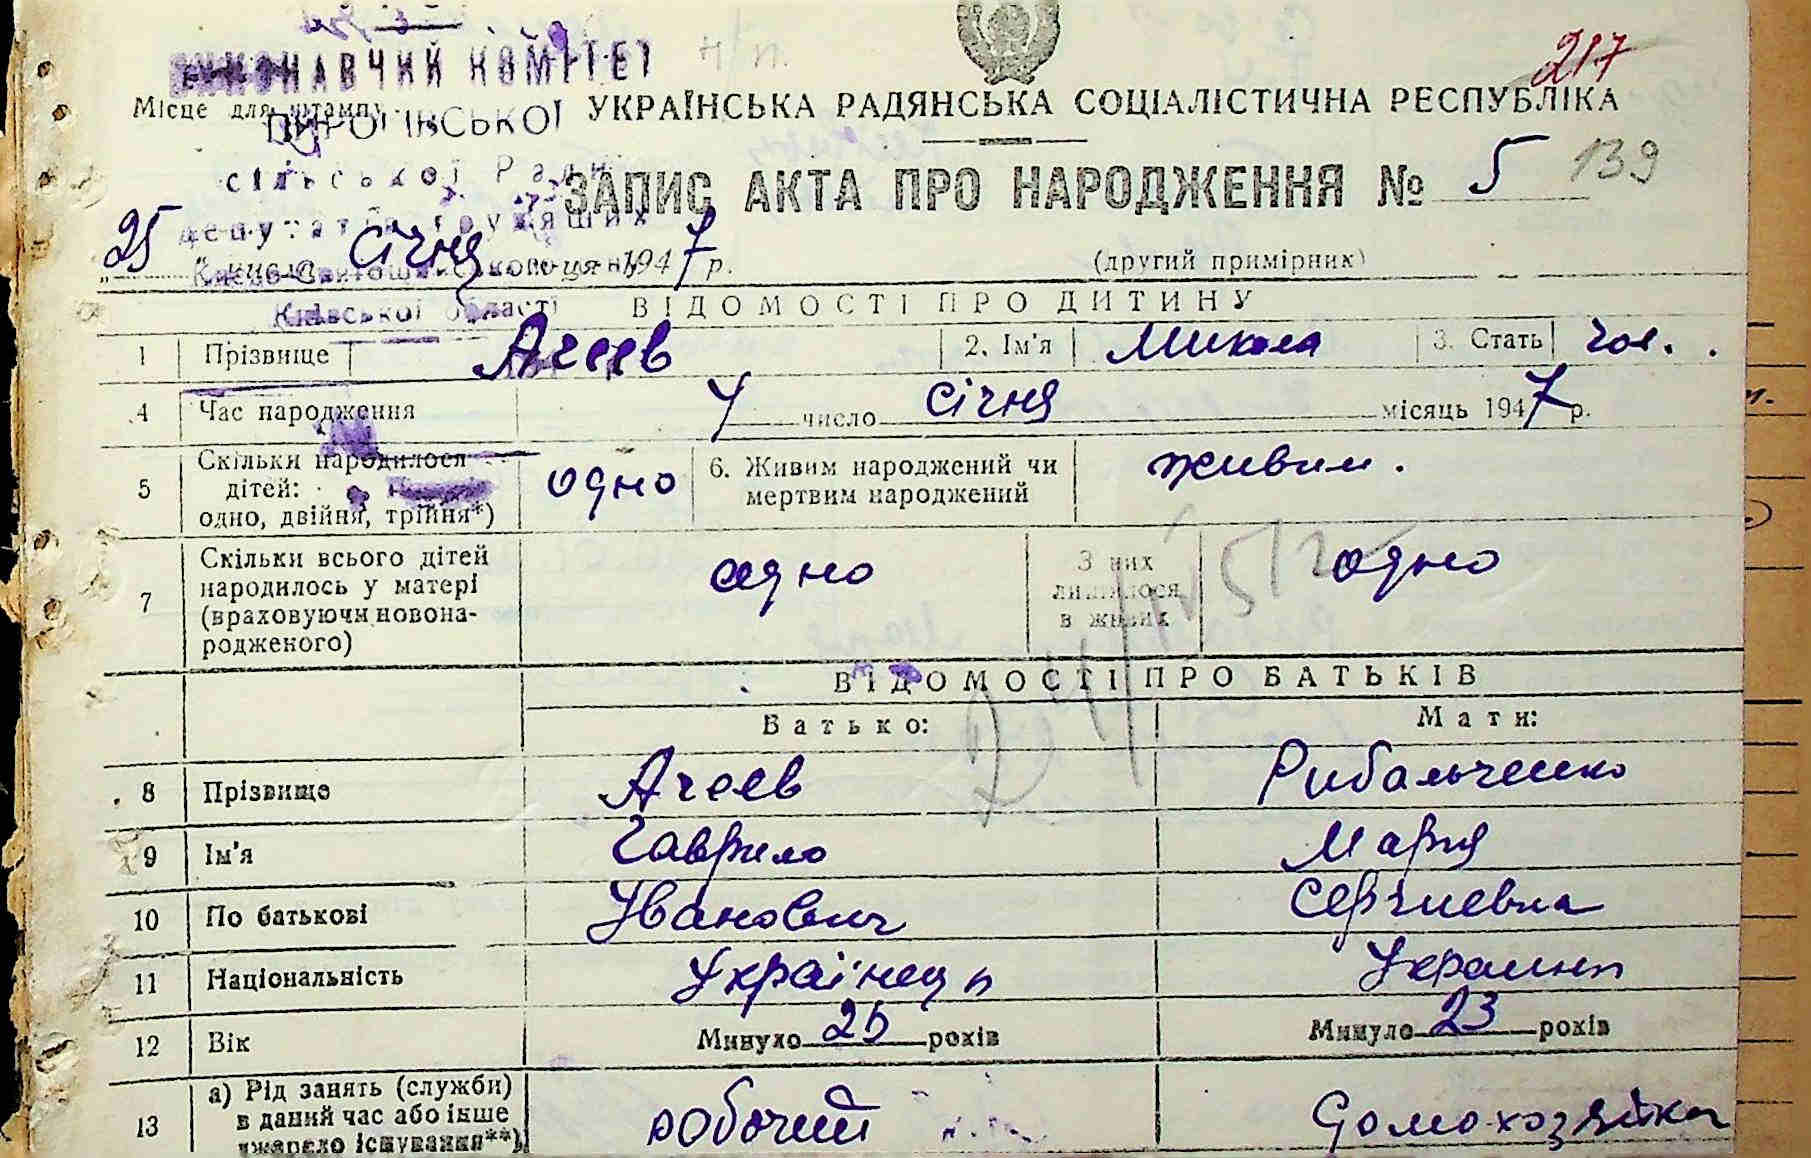 ВИКОНАВЧИЙ КОМІТЕТ
217
Місце для штампу
ПИРОГІВСЬКОЇ
УКРАЇНСЬКА РАДЯНСЬКА СОЦІАЛІСТИЧНА РЕСПУБЛІКА
сільської Ради
ЗАПИС АКТА ПРО НАРОДЖЕННЯ № 5 139
депутатів трудящих
„25" числа січня місяця 1947 р.
(другий примірник)
Київської області
ВІДОМОСТІ ПРО ДИТИНУ
1 Прізвище Агеев 2. Ім'я Микола 3. Стать чол.
4 Час народження 7 число січня місяць 1947 р.
5 Скільки народилося дітей: одно, двійня, трійня*) одно 6. Живим народжений чи мертвим народжений живим.
7 Скільки всього дітей народилось у матері (враховуючи новонародженого) одно З них лишилося в живих одно
ВІДОМОСТІ ПРО БАТЬКІВ
Батько: Мати:
8 Прізвище Агеев Рибальченко
9 Ім'я Гаврило Мария
10 По батькові Иванович Сергиевна
11 Національність Українець Украинка
12 Вік Минуло 25 років Минуло 23 років
13 а) Рід занять (служби) в даний час або інше джерело існування**) робочий домохозяйка